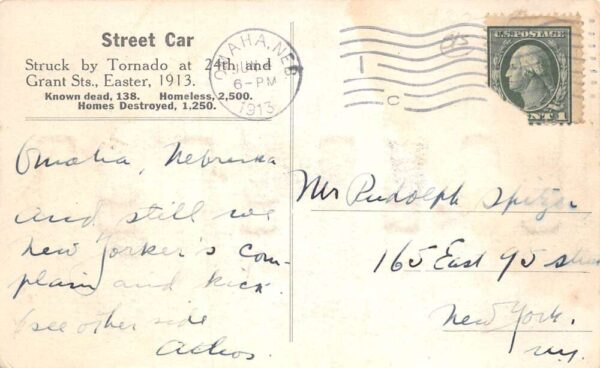 Street Car
Struck by Tornado at 24th and
Grant Sts., Easter, 1913.
Known dead, 138. Homeless, 2,500.
Homes Destroyed, 1,250.
OMAHA, NEB.
6-PM
1913
1
C
U.S. POSTAGE
CENT 1
Omaha, Nebraska
and still we
new Yorker's com-
plain and kick.
see other side
Mr Rudolph Spitzer
165 East 95 street
New York.
NY.